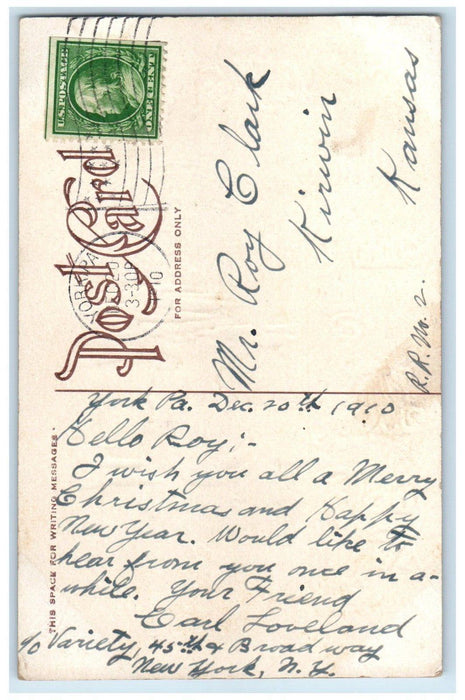 U.S. POSTAGE
ONE CENT
Post Card
FOR ADDRESS ONLY
YORK, PA.
DEC 20
3-30P
1910
Mr. Roy Clark
Kirwin
Kansas
R.R. No. 2.
THIS SPACE FOR WRITING MESSAGES
York Pa. Dec. 20th 1910
Hello Roy;-
I wish you all a Merry
Christmas and Happy
New Year. Would like to
hear from you once in a-
while. Your Friend
Earl Loveland
c/o Variety, 45th & Broadway
New York, N.Y.